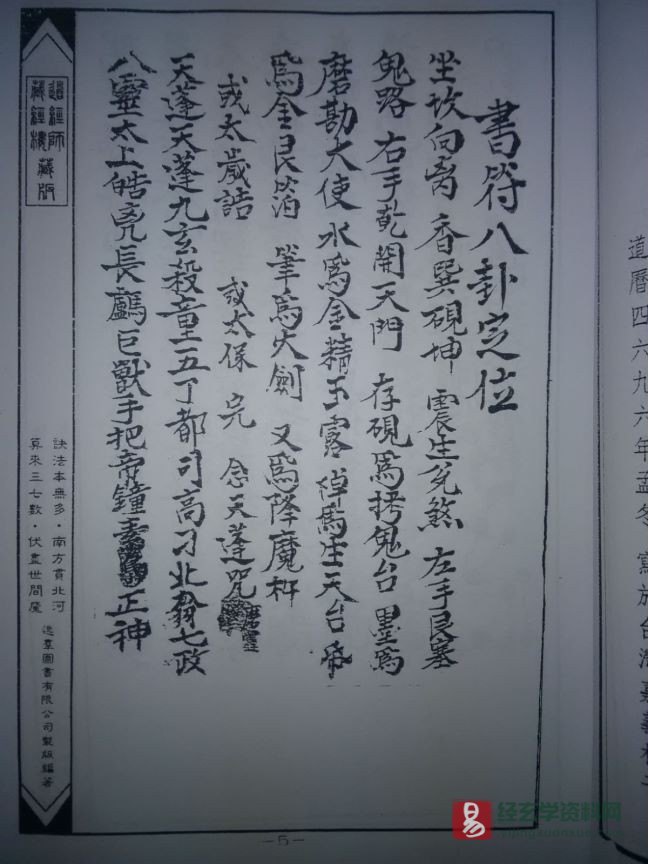 書符八卦定位
坐坎向离 香巽硯坤 震生兌煞 左手艮塞
鬼路 右手乾開天門 存硯爲拷鬼台 墨爲
磨勘大使 水爲金精玉露 爲生天台 帋
爲金艮箔 筆爲火劍 又爲降魔杵
或太歲誥 或太保 完 念天蓬咒
天蓬天蓬九玄殺童五丁都司高刁北翁七政
八靈太上皓兇長顱巨獸手把帝鐘素 正神
道經師
藏經樓藏版
訣法本無多·南方貫北河
算來三七數·伏盡世間魔
逸羣圖書有限公司製版編著
—5—
道曆四六九六年孟冬 於台灣嘉義
易 经玄学资料网